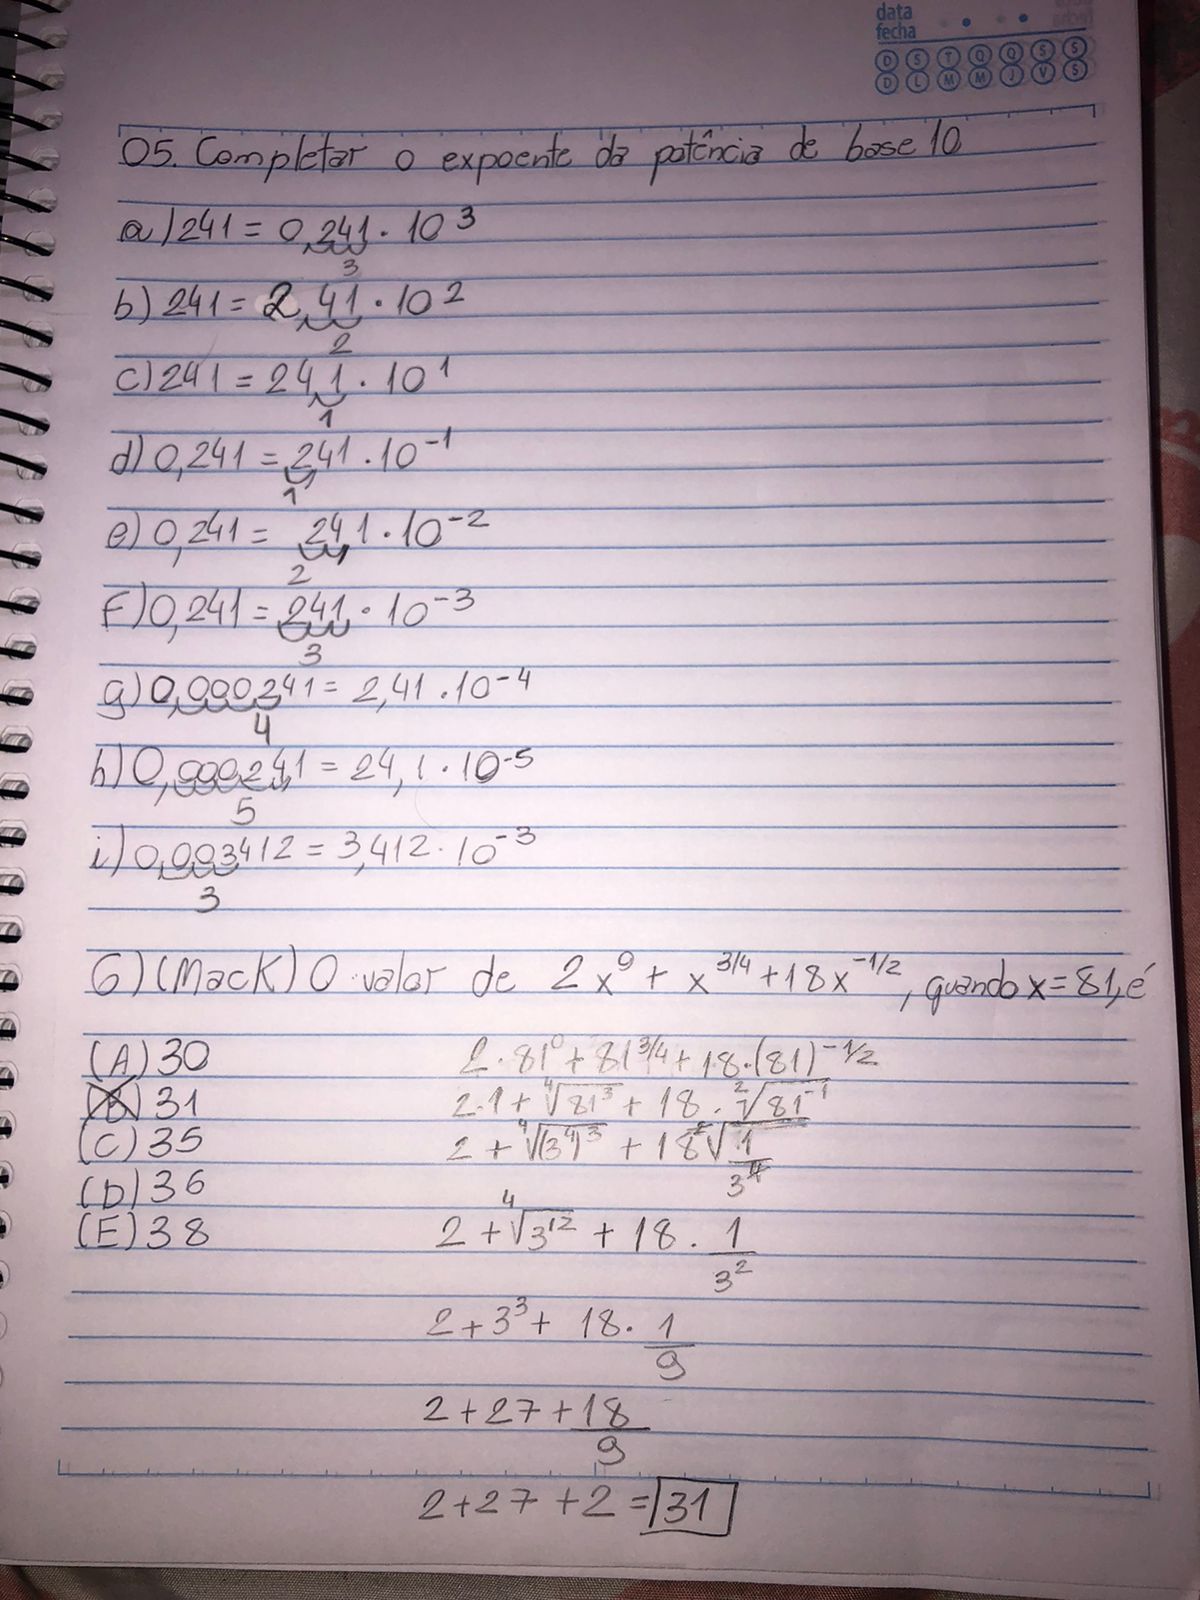 data
fecha
D S T Q Q S S
D L M M J V S
05. Completar o expoente da potência de base 10
a) 241 = 0,241 · 10³
3
b) 241 = 2,41 · 10²
2
c) 241 = 24,1 · 10¹
1
d) 0,241 = 2,41 · 10⁻¹
1
e) 0,241 = 24,1 · 10⁻²
2
F) 0,241 = 241 · 10⁻³
3
g) 0,000241 = 2,41 · 10⁻⁴
4
h) 0,000241 = 24,1 · 10⁻⁵
5
i) 0,003412 = 3,412 · 10⁻³
3
6) (Mack) O valor de 2x⁰ + x^3/4 + 18x^-1/2, quando x = 81, é
(A) 30 2 · 81⁰ + 81^3/4 + 18 · (81)^-1/2
(B) 31 2 · 1 + ⁴√81³ + 18 · ²√81⁻¹
(C) 35 2 + ⁴√(3⁴)³ + 18 ²√1/3⁴
(D) 36
(E) 38 2 + ⁴√3¹² + 18 · 1/3²
2 + 3³ + 18 · 1/9
2 + 27 + 18/9
2 + 27 + 2 = 31